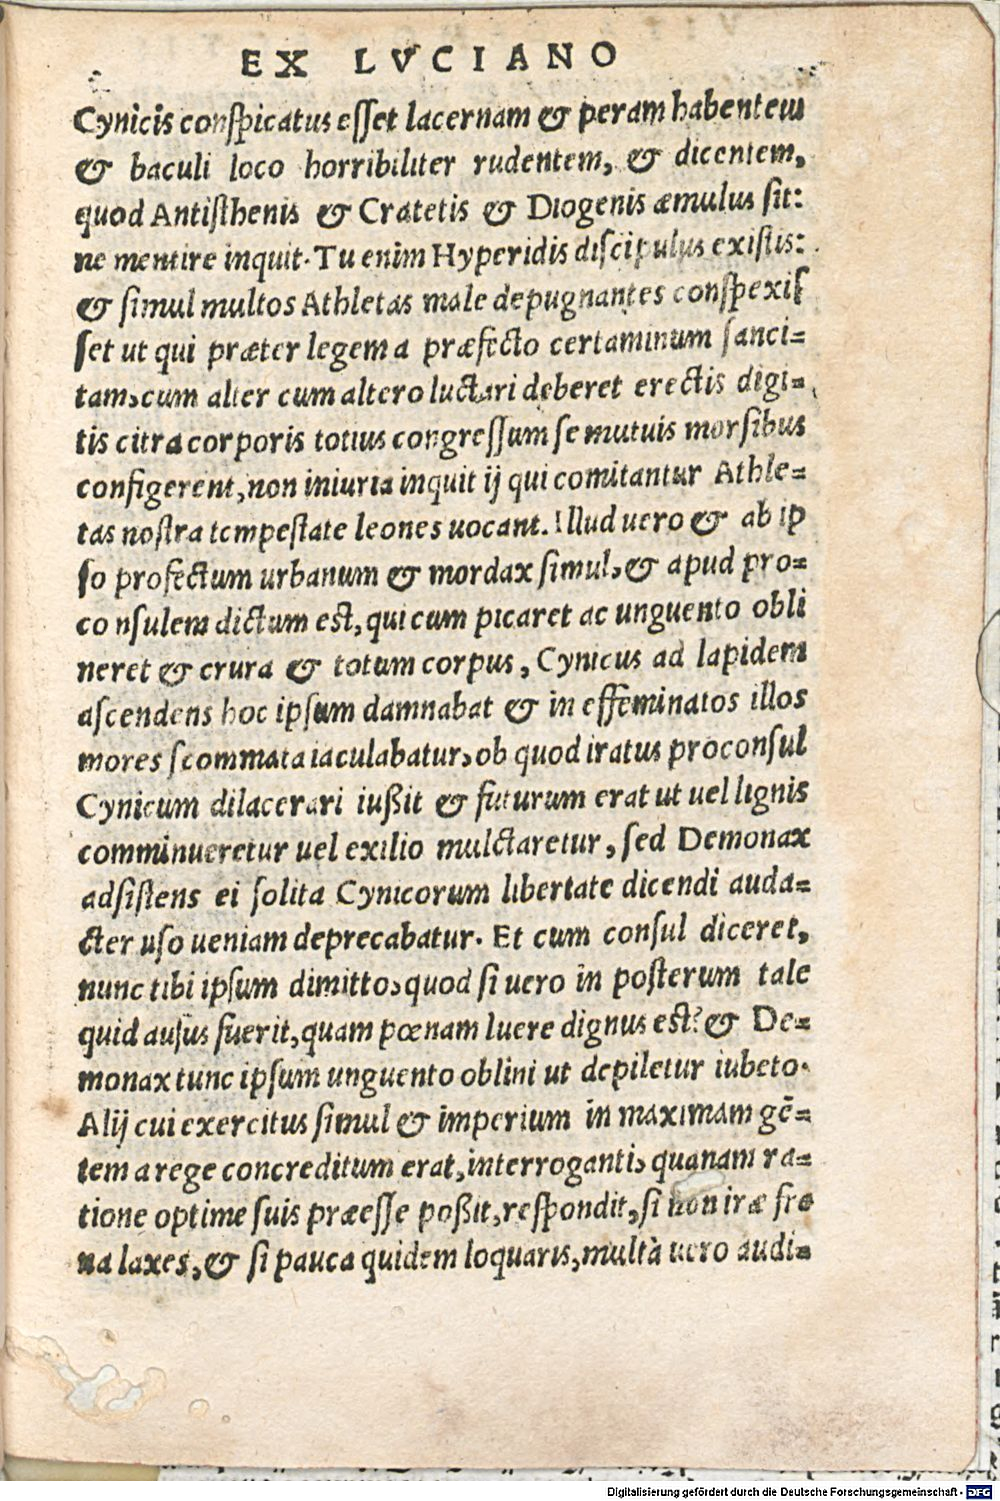 EX LVCIANO
Cynicis conſpicatus eſſet lacernam & peram habentem
& baculi loco horribiliter rudentem, & dicentem,
quod Antiſthenis & Cratetis & Diogenis æmulus ſit:
ne mentire inquit. Tu enim Hyperidis diſcipulus exiſtis:
& ſimul multos Athletas male depugnantes conſpexiſ
ſet ut qui præter legem a præfecto certaminum ſanci-
tam, cum alter cum altero luctari deberet erectis digi-
tis citra corporis totius congreſſum ſe mutuis morſibus
configerent, non iniuria inquit ij qui comitantur Athle-
tas noſtra tempeſtate leones uocant. Illud uero & ab ip
ſo profectum urbanum & mordax ſimul, & apud pro-
co nſulem dictum eſt, qui cum picaret ac unguento obli
neret & crura & totum corpus, Cynicus ad lapidem
aſcendens hoc ipſum damnabat & in effeminatos illos
mores ſcommata iaculabatur, ob quod iratus proconſul
Cynicum dilacerari iußit & futurum erat ut uel lignis
comminueretur uel exilio mulctaretur, ſed Demonax
adſiſtens ei ſolita Cynicorum libertate dicendi auda-
cter uſo ueniam deprecabatur. Et cum conſul diceret,
nunc tibi ipſum dimitto, quod ſi uero in poſterum tale
quid auſus fuerit, quam pœnam luere dignus eſt? & De-
monax tunc ipſum unguento oblini ut depiletur iubeto.
Alij cui exercitus ſimul & imperium in maximam gē-
tem a rege concreditum erat, interroganti, quanam ra-
tione optime ſuis præeſſe poßit, reſpondit, ſi non iræ fre
na laxes, & ſi pauca quidem loquaris, multà uero audi-
Digitalisierung gefördert durch die Deutsche Forschungsgemeinschaft - DFG